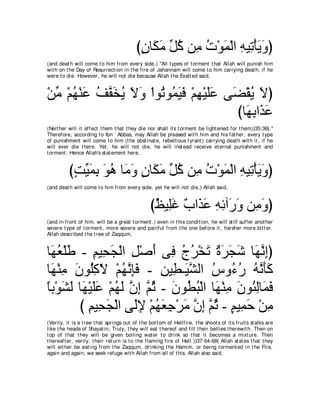 (وَيَأْتِيهِ الْمَوْتُ مِن كُلِّ مَكَانٍ)
(and death will come to him from every side,) "All types of torment that Allah will punish him
with on the Day of Resurrection in the fire of Jahannam will come to him carrying death, if he
were to die. However, he will not die because Allah the Exalted said,
(لاَ يُقْضَى عَلَيْهِمْ فَيَمُوتُواْ وَلاَ يُخَفَّفُ عَنْهُمْ مِّنْ
عَذَابِهَا)
(Neither will it affect them that they die nor shall its torment be lightened for them)(35:36)."
Therefore, according to Ibn `Abbas, may Allah be pleased with him and his father, every type
of punishment will come to him (the obstinate, rebellious tyrant) carrying death with it, if he
will ever die there. Yet, he will not die, he will instead receive eternal punishment and
torment. Hence Allah's statement here,
(وَيَأْتِيهِ الْمَوْتُ مِن كُلِّ مَكَانٍ وَمَا هُوَ بِمَيِّتٍ)
(and death will come to him from every side, yet he will not die,) Allah said,
(وَمِن وَرَآئِهِ عَذَابٌ غَلِيظٌ)
(and in front of him, will be a great torment.) even in this condition, he will still suffer another
severe type of torment, more severe and painful from the one before it, harsher more bitter.
Allah described the tree of Zaqqum,
(إِنَّهَا شَجَرَةٌ تَخْرُجُ فِى أَصْلِ الْجَحِيمِ - طَلْعُهَا
كَأَنَّهُ رُءُوسُ الشَّيَـطِينِ - فَإِنَّهُمْ لاّكِلُونَ مِنْهَا
فَمَالِئُونَ مِنْهَا الْبُطُونَ - ثُمَّ إِنَّ لَهُمْ عَلَيْهَا لَشَوْباً
مِنْ حَمِيمٍ - ثُمَّ إِنَّ مَرْجِعَهُمْ لإِلَى الْجَحِيمِ )
(Verily, it is a tree that springs out of the bottom of Hellfire, the shoots of its fruits stalks are
like the heads of Shayatin; Truly, they will eat thereof and fill their bellies therewith. Then on
top of that they will be given boiling water to drink so that it becomes a mixture. Then
thereafter, verily, their return is to the flaming fire of Hell.)(37:64-68( Allah states that they
will either be eating from the Zaqqum, drinking the Hamim, or being tormented in the Fire,
again and again; we seek refuge with Allah from all of this. Allah also said,